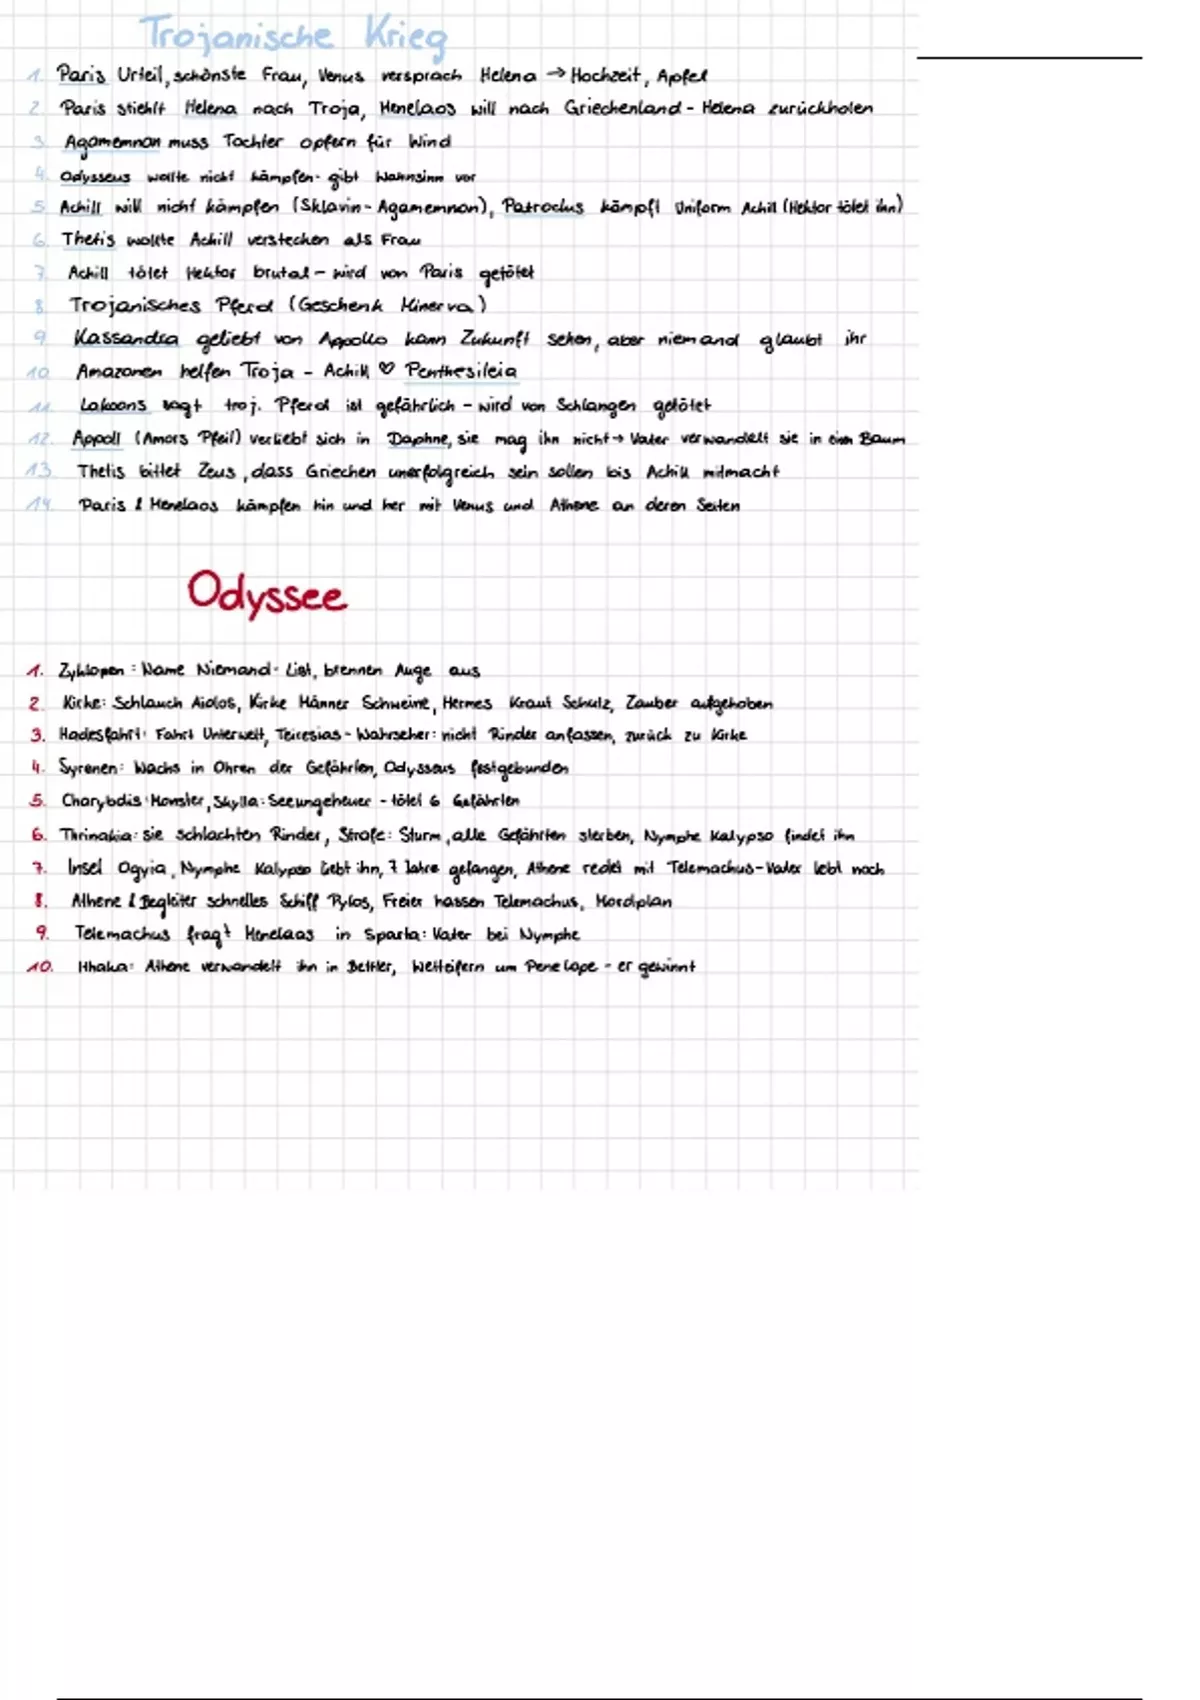 Trojanische Krieg
1. Paris Urteil, schönste Frau, Venus versprach Helena → Hochzeit, Apfel
2. Paris stiehlt Helena nach Troja, Menelaos will nach Griechenland - Helena zurückholen
3. Agamemnon muss Tochter opfern für Wind
4. Odysseus wollte nicht kämpfen - gibt Wahnsinn vor
5. Achill will nicht kämpfen (Sklavin - Agamemnon), Patroclus kämpft Uniform Achill (Hektor tötet ihn)
6. Thetis wollte Achill verstecken als Frau
7. Achill tötet Hektor brutal - wird von Paris getötet
8. Trojanisches Pferd (Geschenk Minerva)
9. Kassandra geliebt von Appollo kann Zukunft sehen, aber niemand glaubt ihr
10. Amazonen helfen Troja - Achill ♡ Penthesileia
11. Lakoons sagt troj. Pferd ist gefährlich - wird von Schlangen getötet
12. Appoll (Amors Pfeil) verliebt sich in Daphne, sie mag ihn nicht → Vater verwandelt sie in einen Baum
13. Thetis bittet Zeus, dass Griechen unerfolgreich sein sollen bis Achill mitmacht
14. Paris & Menelaos kämpfen hin und her mit Venus und Athene an deren Seiten
Odyssee
1. Zyklopen: Name Niemand - List, brennen Auge aus
2. Kirke: Schlauch Aiolos, Kirke Männer Schweine, Hermes Kraut Schutz, Zauber aufgehoben
3. Hadesfahrt: Fahrt Unterwelt, Teiresias - Wahrseher: nicht Rinder anfassen, zurück zu Kirke
4. Syrenen: Wachs in Ohren der Gefährten, Odysseus festgebunden
5. Charybdis: Monster, Skylla: Seeungeheuer - tötet 6 Gefährten
6. Thrinakia: sie schlachten Rinder, Strafe: Sturm, alle Gefährten sterben, Nymphe Kalypso findet ihn
7. Insel Ogyia, Nymphe Kalypso liebt ihn, 7 Jahre gefangen, Athene redet mit Telemachus - Vater lebt noch
8. Athene & Begleiter schnelles Schiff Pylos, Freier hassen Telemachus, Mordplan
9. Telemachus fragt Menelaas in Sparta: Vater bei Nymphe
10. Ithaka: Athene verwandelt ihn in Bettler, Wetteifern um Penelope - er gewinnt